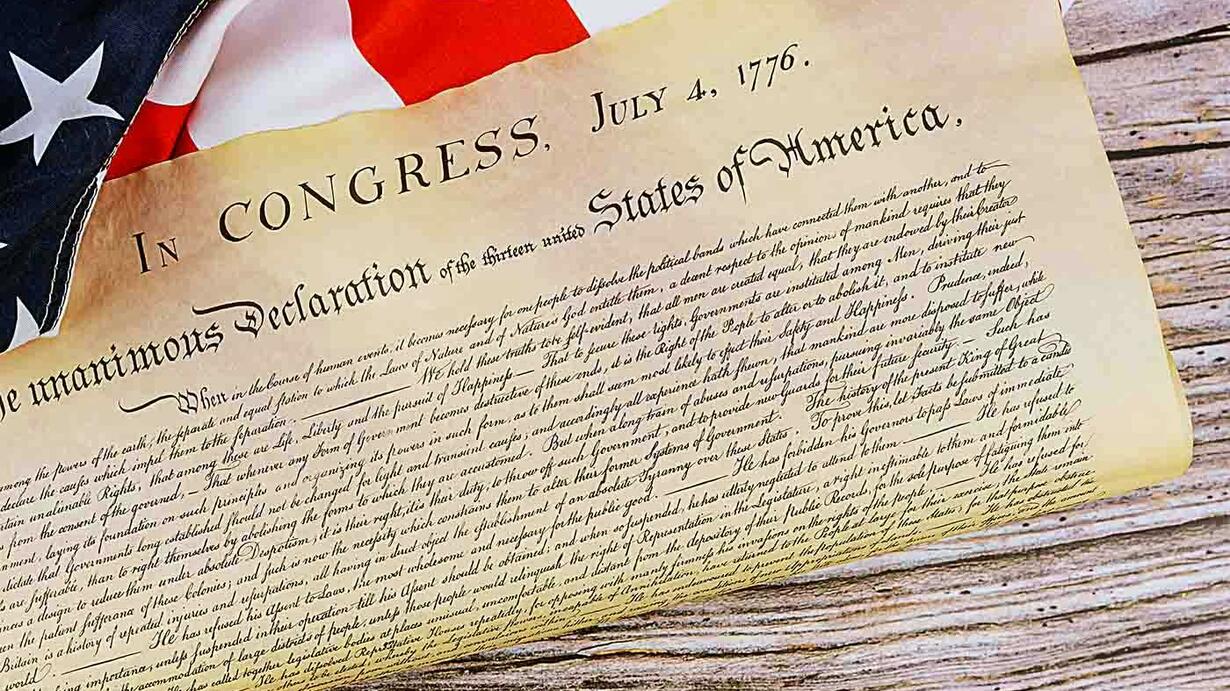 IN CONGRESS, JULY 4, 1776.
e unanimous Declaration of the thirteen united States of America,
When in the Course of human events, it becomes necessary for one people to dissolve the political bands which have connected them with another, and to
among the powers of the earth, the separate and equal station to which the Laws of Nature and of Nature's God entitle them, a decent respect to the opinions of mankind requires that they
declare the causes which impel them to the separation. We hold these truths to be self-evident, that all men are created equal, that they are endowed by their Creator
unalienable Rights, that among these are Life, Liberty and the pursuit of Happiness — That to secure these rights, Governments are instituted among Men, deriving their just
from the consent of the governed, — That whenever any Form of Government becomes destructive of these ends, it is the Right of the People to alter or to abolish it, and to institute new
laying its foundation on such principles and organizing its powers in such form, as to them shall seem most likely to effect their Safety and Happiness. Prudence, indeed,
that Governments long established should not be changed for light and transient causes; and accordingly all experience hath shewn, that mankind are more disposed to suffer, while
are sufferable, than to right themselves by abolishing the forms to which they are accustomed. But when a long train of abuses and usurpations, pursuing invariably the same Object
a design to reduce them under absolute Despotism, it is their right, it is their duty, to throw off such Government, and to provide new Guards for their future security. — Such has
the patient sufferance of these Colonies; and such is now the necessity which constrains them to alter their former Systems of Government. The history of the present King of Great
Britain is a history of repeated injuries and usurpations, all having in direct object the establishment of an absolute Tyranny over these States. To prove this, let Facts be submitted to a candid
world. He has refused his Assent to Laws, the most wholesome and necessary for the public good. He has forbidden his Governors to pass Laws of immediate
importance, unless suspended in their operation till his Assent should be obtained; and when so suspended, he has utterly neglected to attend to them. He has refused to
accommodation of large districts of people, unless those people would relinquish the right of Representation in the Legislature, a right inestimable to them and formidable
has called together legislative bodies at places unusual, uncomfortable, and distant from the depository of their Public Records, for the sole purpose of fatiguing them into
He has dissolved Representative Houses repeatedly, for opposing with manly firmness his invasions on the rights of the people. He has refused for